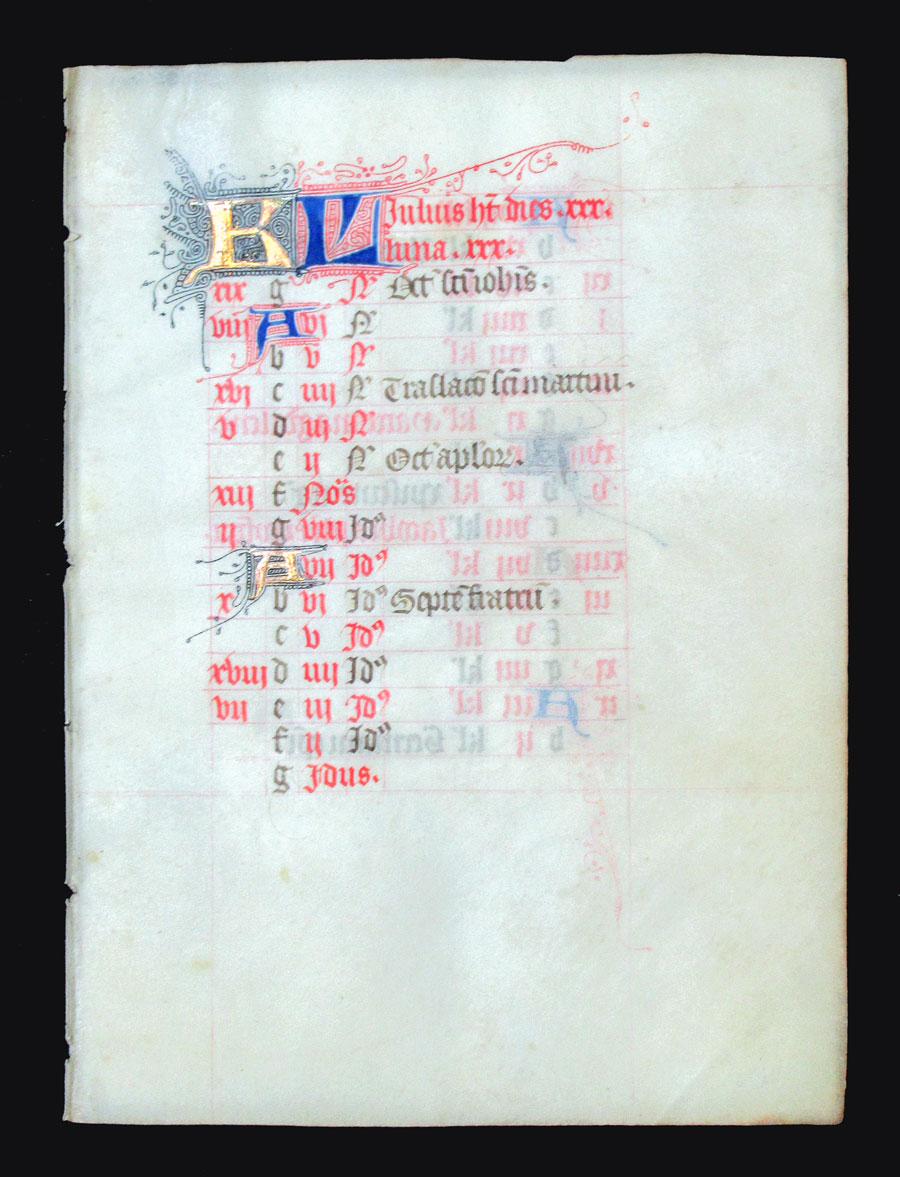 KL Julius ht dies .xxx.
luna .xxx.
xix g N Oct sci iohis.
viii A vi N
b v N
xvi c iiii N Traslaco sci martini.
v d iii N
e ii N Oct aplor.
xiii f Nos
ii g viii Id
A vii Id
x b vi Id Septe fratru.
c v Id
xviii d iiii Id
vii e iii Id
f ii Id
g Idus.